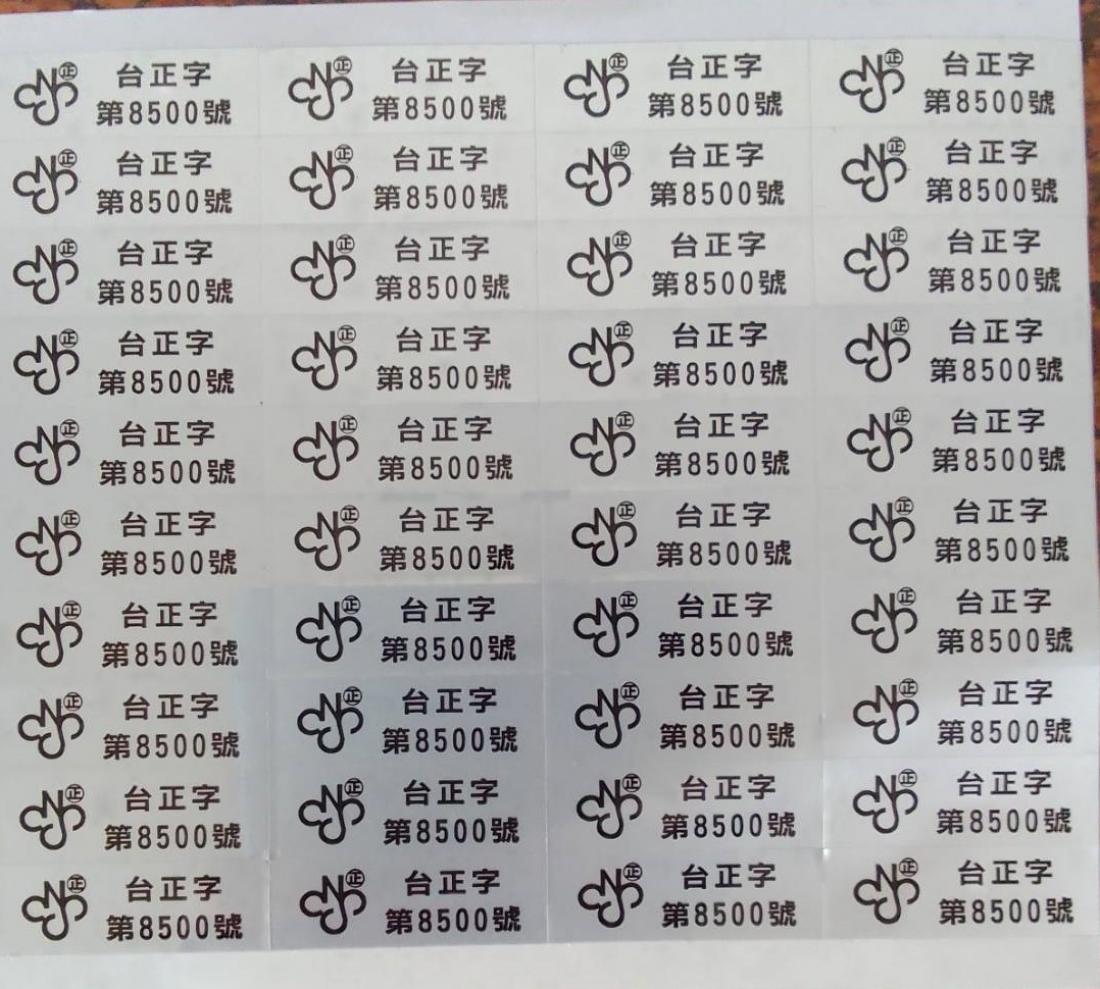 ㊣ 台正字 ㊣ 台正字 ㊣ 台正字 ㊣ 台正字
第8500號 第8500號 第8500號 第8500號
㊣ 台正字 ㊣ 台正字 ㊣ 台正字 ㊣ 台正字
第8500號 第8500號 第8500號 第8500號
㊣ 台正字 ㊣ 台正字 ㊣ 台正字 ㊣ 台正字
第8500號 第8500號 第8500號 第8500號
㊣ 台正字 ㊣ 台正字 ㊣ 台正字 ㊣ 台正字
第8500號 第8500號 第8500號 第8500號
㊣ 台正字 ㊣ 台正字 ㊣ 台正字 ㊣ 台正字
第8500號 第8500號 第8500號 第8500號
㊣ 台正字 ㊣ 台正字 ㊣ 台正字 ㊣ 台正字
第8500號 第8500號 第8500號 第8500號
㊣ 台正字 ㊣ 台正字 ㊣ 台正字 ㊣ 台正字
第8500號 第8500號 第8500號 第8500號
㊣ 台正字 ㊣ 台正字 ㊣ 台正字 ㊣ 台正字
第8500號 第8500號 第8500號 第8500號
㊣ 台正字 ㊣ 台正字 ㊣ 台正字 ㊣ 台正字
第8500號 第8500號 第8500號 第8500號
㊣ 台正字 ㊣ 台正字 ㊣ 台正字 ㊣ 台正字
第8500號 第8500號 第8500號 第8500號